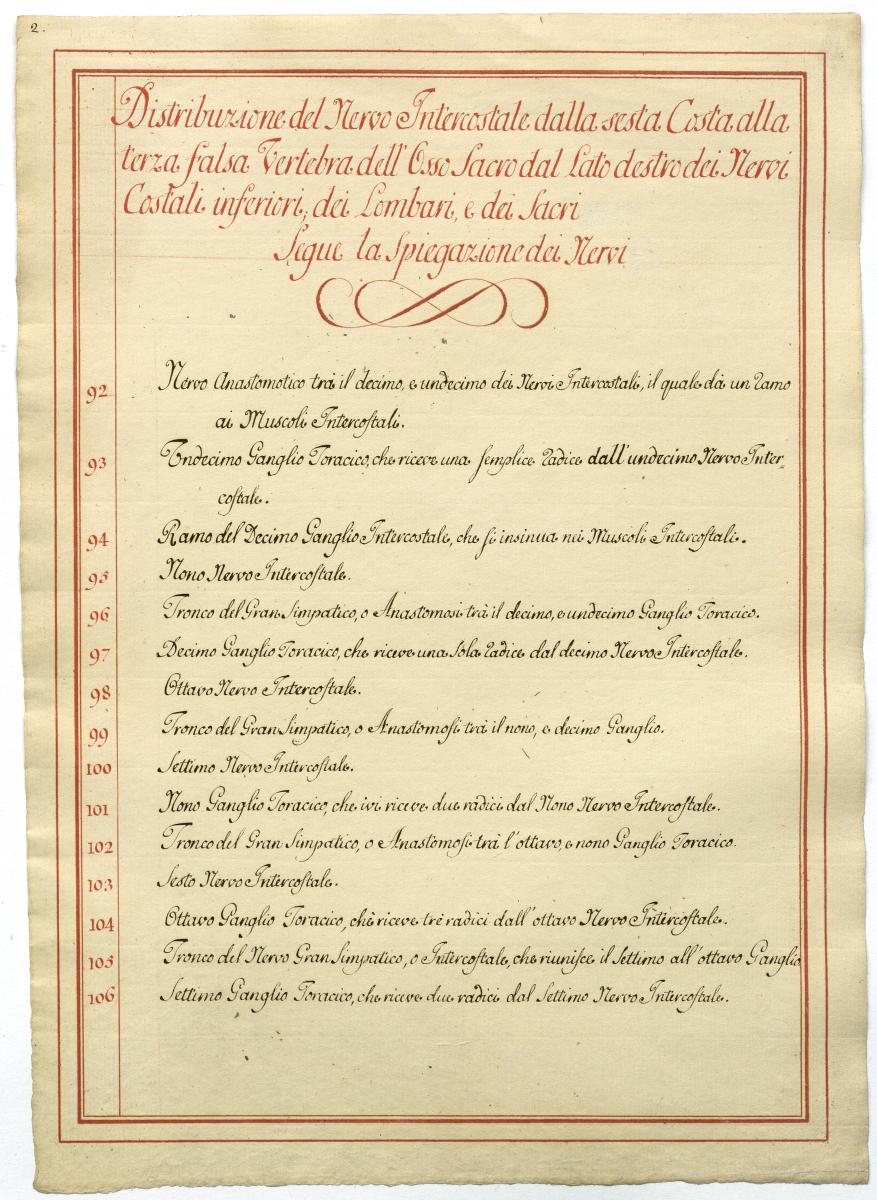 2.
Distribuzione del Nervo Intercostale dalla sesta Costa alla
terza falsa Vertebra dell'Osso Sacro dal Lato destro dei Nervi
Costali inferiori, dei Lombari, e dei Sacri
Segue la Spiegazione dei Nervi
92 Nervo Anastomotico trà il decimo, e undecimo dei Nervi Intercostali, il quale dà un Ramo
ai Muscoli Intercostali.
93 Undecimo Ganglio Toracico, che riceve una semplice Radice dall'undecimo Nervo Inter-
costale.
94 Ramo del Decimo Ganglio Intercostale, che si insinua nei Muscoli Intercostali.
95 Nono Nervo Intercostale.
96 Tronco del Gran Simpatico, o Anastomosi trà il decimo, e undecimo Ganglio Toracico.
97 Decimo Ganglio Toracico, che riceve una sola Radice dal decimo Nervo Intercostale.
98 Ottavo Nervo Intercostale.
99 Tronco del Gran Simpatico, o Anastomosi trà il nono, e decimo Ganglio.
100 Settimo Nervo Intercostale.
101 Nono Ganglio Toracico, che ivi riceve due radici dal Nono Nervo Intercostale.
102 Tronco del Gran Simpatico, o Anastomosi trà l'ottavo, e nono Ganglio Toracico.
103 Sesto Nervo Intercostale.
104 Ottavo Ganglio Toracico, chè riceve trè radici dall'ottavo Nervo Intercostale.
105 Tronco del Nervo Gran Simpatico, o Intercostale, che riunisce il Settimo all'ottavo Ganglio
106 Settimo Ganglio Toracico, che riceve due radici dal Settimo Nervo Intercostale.